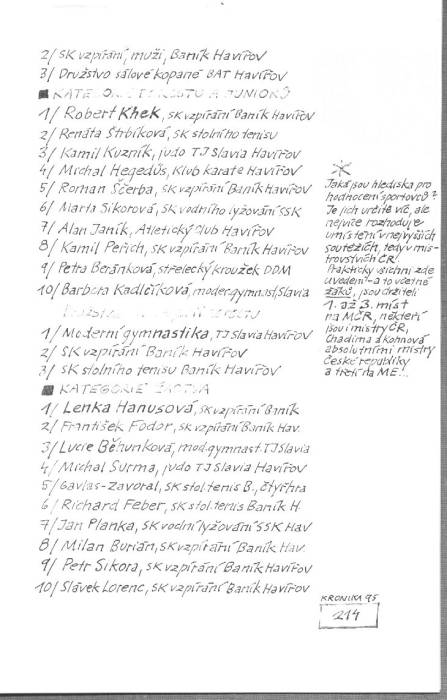 2/ SK vzpírání, muži, Baník Havířov
3/ Družstvo sálové kopané BAT Havířov
1/ Robert Khek, SK vzpírání Baník Havířov
2/ Renáta Štrbíková, SK stolního tenisu
3/ Kamil Kuzník, judo TJ Slavia Havířov
4/ Michal Hegedüs, Klub karate Havířov
5/ Roman Ščerba, SK vzpírání Baník Havířov
6/ Marta Sikorová, SK vodního lyžování SSK
7/ Alan Janík, Atletický club Havířov
8/ Kamil Peřich, SK vzpírání Baník Havířov
9/ Petra Beránková, střelecký kroužek DDM
10/ Barbora Kadlčíková, moder.gymnast, Slavia
1/ Moderní gymnastika, TJ Slavia Havířov
2/ SK vzpírání Baník Havířov
3/ SK stolního tenisu Baník Havířov
KATEGORIE ŽACTVA
1/ Lenka Hanusová, SK vzpírání Baník
2/ František Fodor, SK vzpírání Baník Hav.
3/ Lucie Běhunková, mod.gymnast. TJ Slavia
4/ Michal Šurma, judo TJ Slavia Havířov
5/ Gavlas-Zavoral, SK stol.tenis B., čtyřhra
6/ Richard Feber, SK stol.tenis Baník H.
7/ Jan Planka, SK vodní lyžování SSK Hav
8/ Milan Burián, SK vzpírání Baník Hav.
9/ Petr Sikora, SK vzpírání Baník Havířov
10/ Slávek Lorenc, SK vzpírání Baník Havířov
Jaká jsou hlediska pro
hodnocení sportovců?
Je jich určitě víc, ale
nejvíce rozhoduje
umístění v nejvyšších
soutěžích, tedy v mis-
trovstvích ČR.
Prakticky všichni zde
uvedení - a to včetně
žáků, jsou držiteli
1. až 3. míst
na MČR, někteří
jsou i mistry ČR,
Chadima a Kohnová
absolutními mistry
České republiky
a třetí na ME!..
KRONIKA 95
214